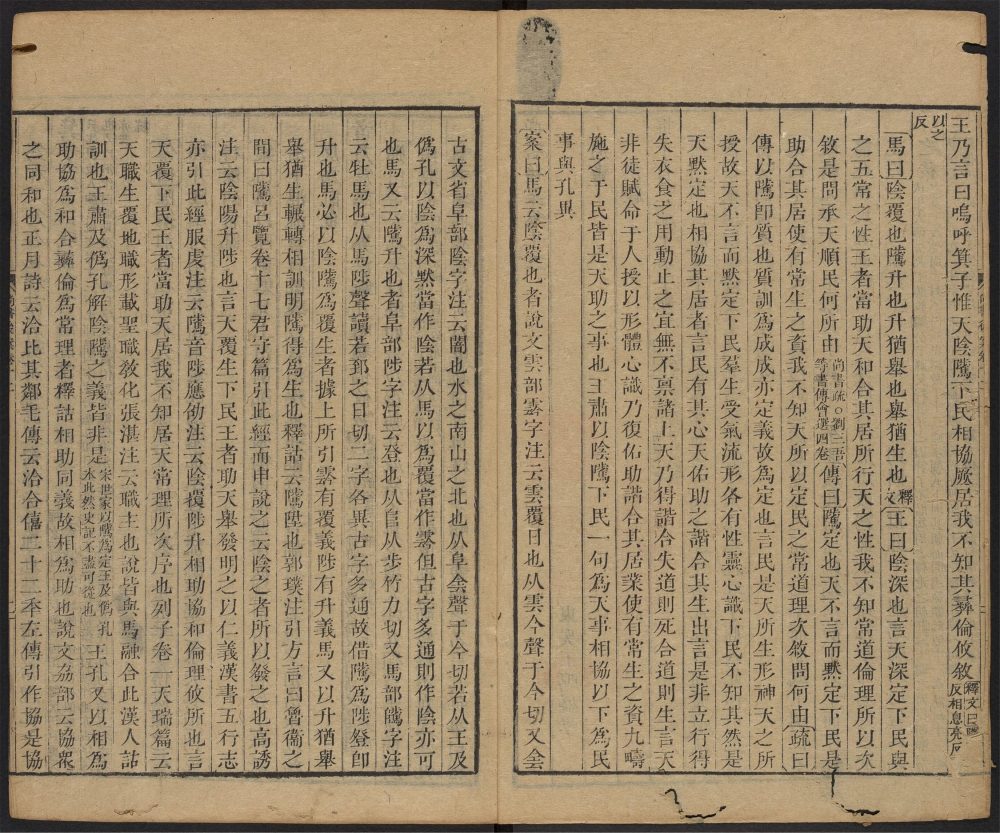 王乃言曰嗚呼箕子惟天陰騭下民相協厥居我不知其彝倫攸敘釋文曰騭
反相息亮反
以之
反
馬曰陰覆也騭升也升猶舉也舉猶生也釋文王曰陰深也言天深定下民與
之五常之性王者當助天和合其居所行天之性我不知常道倫理所以次
敘是問承天順民何所由尚書疏○劉三吾
等書傳會選四卷傳曰騭定也天不言而默定下民是
助合其居使有常生之資我不知天所以定民之常道理次敘問何由疏曰
傳以騭即質也質訓爲成成亦定義故爲定也言民是天所生形神天之所
授故天不言而默定下民羣生受氣流形各有性靈心識下民不知其然是
天默定也相協其居者言民有其心天佑助之諧合其生出言是非立行得
失衣食之用動止之宜無不稟諸上天乃得諧合失道則死合道則生言天
非徒賦命于人授以形體心識乃復佑助諧合其居業使有常生之資九疇
施之于民皆是天助之事也王肅以陰騭下民一句爲天事相協以下爲民
事與孔異
案曰馬云陰覆也者說文雲部霒字注云雲覆日也从雲今聲于今切又侌
古文省阜部陰字注云闇也水之南山之北也从阜侌聲于今切若从王及
僞孔以陰爲深默當作陰若从馬以爲覆當作霒但古字多通則作陰亦可
也馬又云騭升也者阜部陟字注云登也从𨸏从步竹力切又馬部騭字注
云牡馬也从馬陟聲讀若郅之日切二字各異古字多通故借騭爲陟登卽
升也馬必以陰騭爲覆生者據上所引霒有覆義陟有升義馬又以升猶舉
舉猶生輾轉相訓明騭得爲生也釋詁云騭陞也郭璞注引方言曰魯衞之
間曰騭呂覽卷十七君守篇引此經而申說之云陰之者所以發之也高誘
注云陰陽升陟也言天覆生下民王者助天舉發明之以仁義漢書五行志
亦引此經服虔注云騭音陟應劭注云陰覆陟升相助協和倫理攸所也言
天覆下民王者當助天居我不知居天常理所次序也列子卷一天瑞篇云
天職生覆地職形載聖職敎化張湛注云職主也說皆與馬融合此漢人詁
訓也王肅及僞孔解陰騭之義皆非是宋世家以騭爲定王及僞孔
本此然史記不盡可從也王孔又以相爲
助協爲和合彝倫爲常理者釋詁相助同義故相爲助也說文劦部云協衆
之同和也正月詩云洽比其鄰毛傳云洽合僖二十二年左傳引作協是協